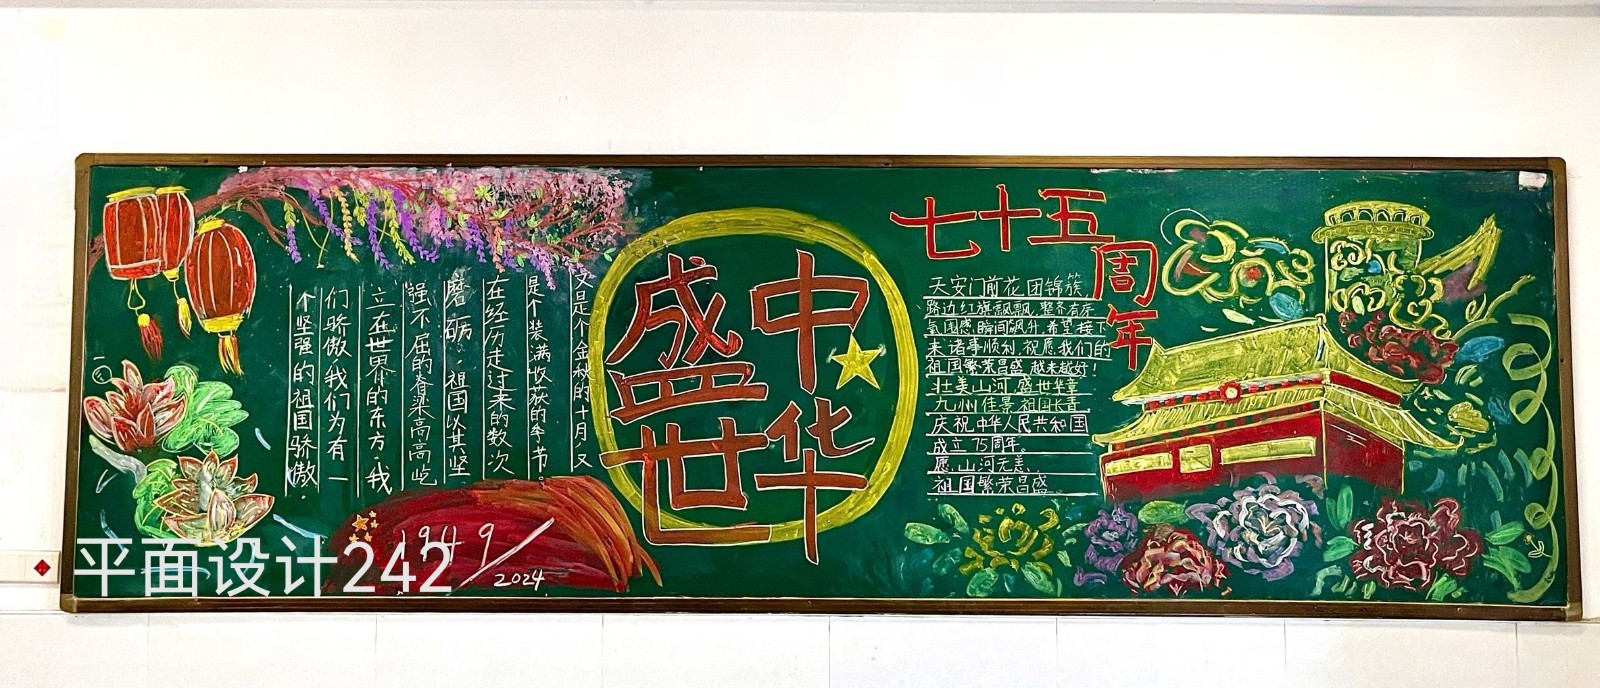 又是个金秋的十月,又
是个装满收获的季节。
在经历走过来的数次
磨砺。祖国以其坚
强不屈的脊梁高高屹
立在世界的东方。我
们骄傲我们为有一
个坚强的祖国骄傲。
1949/
2024
中华
盛世
七十五周年
天安门前花团锦簇
路边红旗飘飘,整齐有序
氛围感瞬间飙升,希望接下
来诸事顺利,祝愿我们的
祖国繁荣昌盛越来越好!
壮美山河,盛世华章
九州佳景祖国长青
庆祝中华人民共和国
成立75周年。
愿山河无恙、
祖国繁荣昌盛。
平面设计242